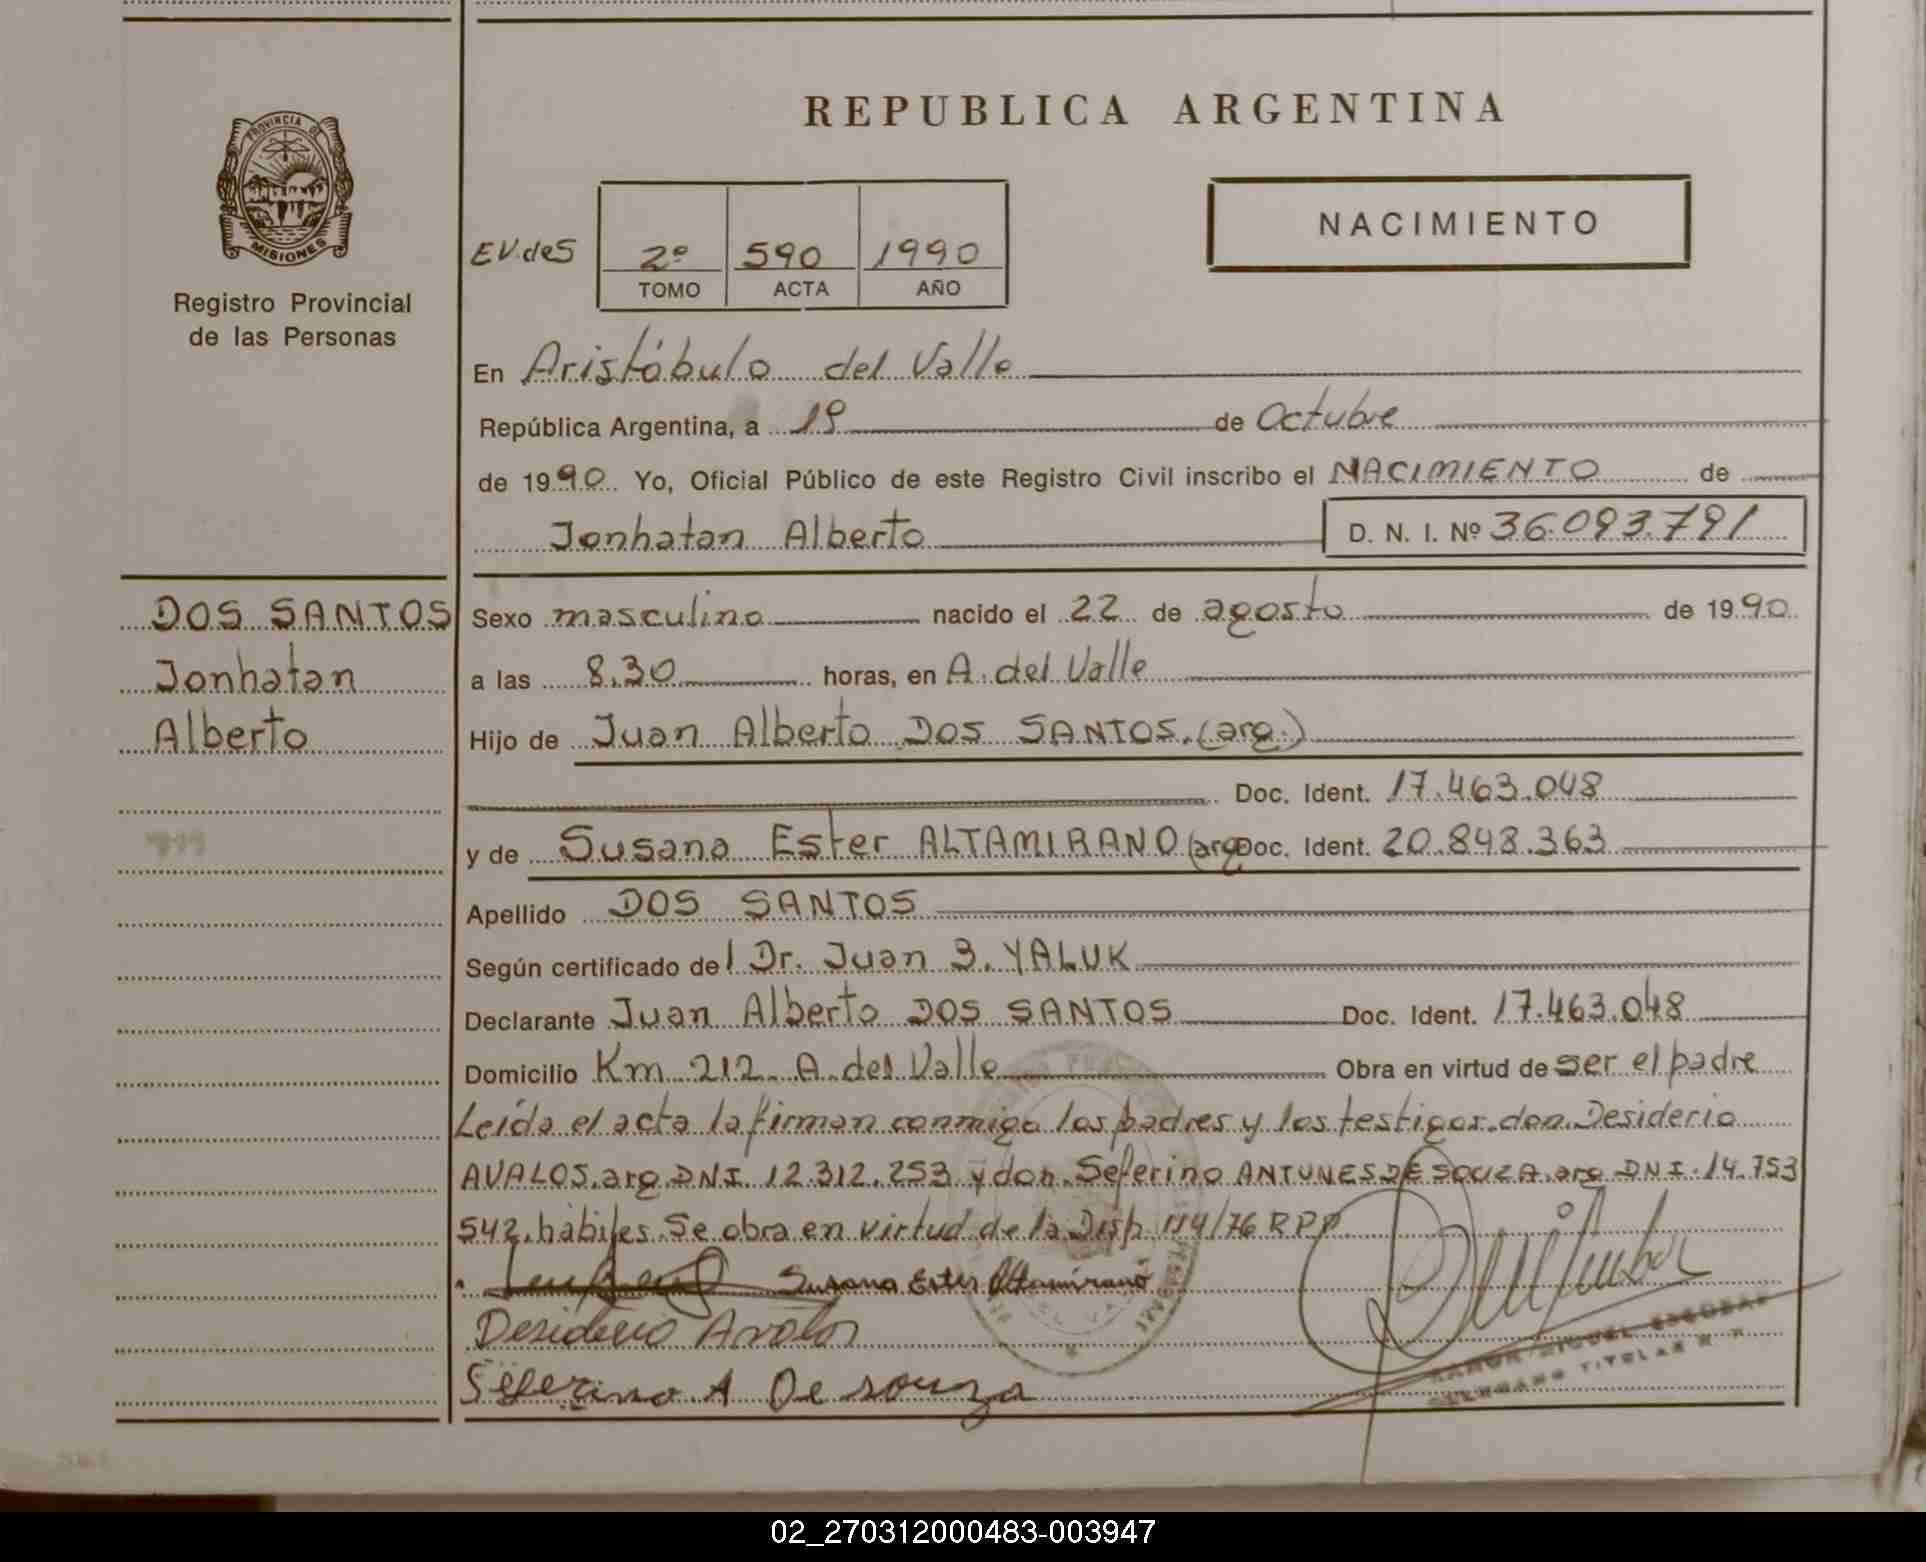 REPUBLICA ARGENTINA
PROVINCIA DE MISIONES
Registro Provincial
de las Personas
EV.des
2º 590 1990
TOMO ACTA AÑO
NACIMIENTO
En Aristóbulo del Valle
República Argentina, a 19 de Octubre
de 1990. Yo, Oficial Público de este Registro Civil inscribo el NACIMIENTO de
Jonhatan Alberto D. N. I. Nº 36.093.791
DOS SANTOS
Jonhatan
Alberto
Sexo masculino nacido el 22 de agosto de 1990
a las 8.30 horas, en A. del Valle
Hijo de Juan Alberto DOS SANTOS.(arg.)
Doc. Ident. 17.463.048
y de Susana Ester ALTAMIRANO (arg Doc. Ident. 20.848.363
Apellido DOS SANTOS
Según certificado del Dr. Juan B. YALUK
Declarante Juan Alberto DOS SANTOS Doc. Ident. 17.463.048
Domicilio Km 212 A. del Valle Obra en virtud de ser el padre
Leída el acta la firman conmigo los padres y los testigos.don.Desiderio
AVALOS.arg.DNI. 12.312.253 y don.Seferino ANTUNES DE SOUZA.arg DNI.14.753
542.hábiles.Se obra en virtud de la Disp. 114/76 RPP
Susana Ester Altamirano
Desiderio Avalos
Seferino A De souza
RAMON MIGUEL ESCOBAR
TITULAR
02_270312000483-003947